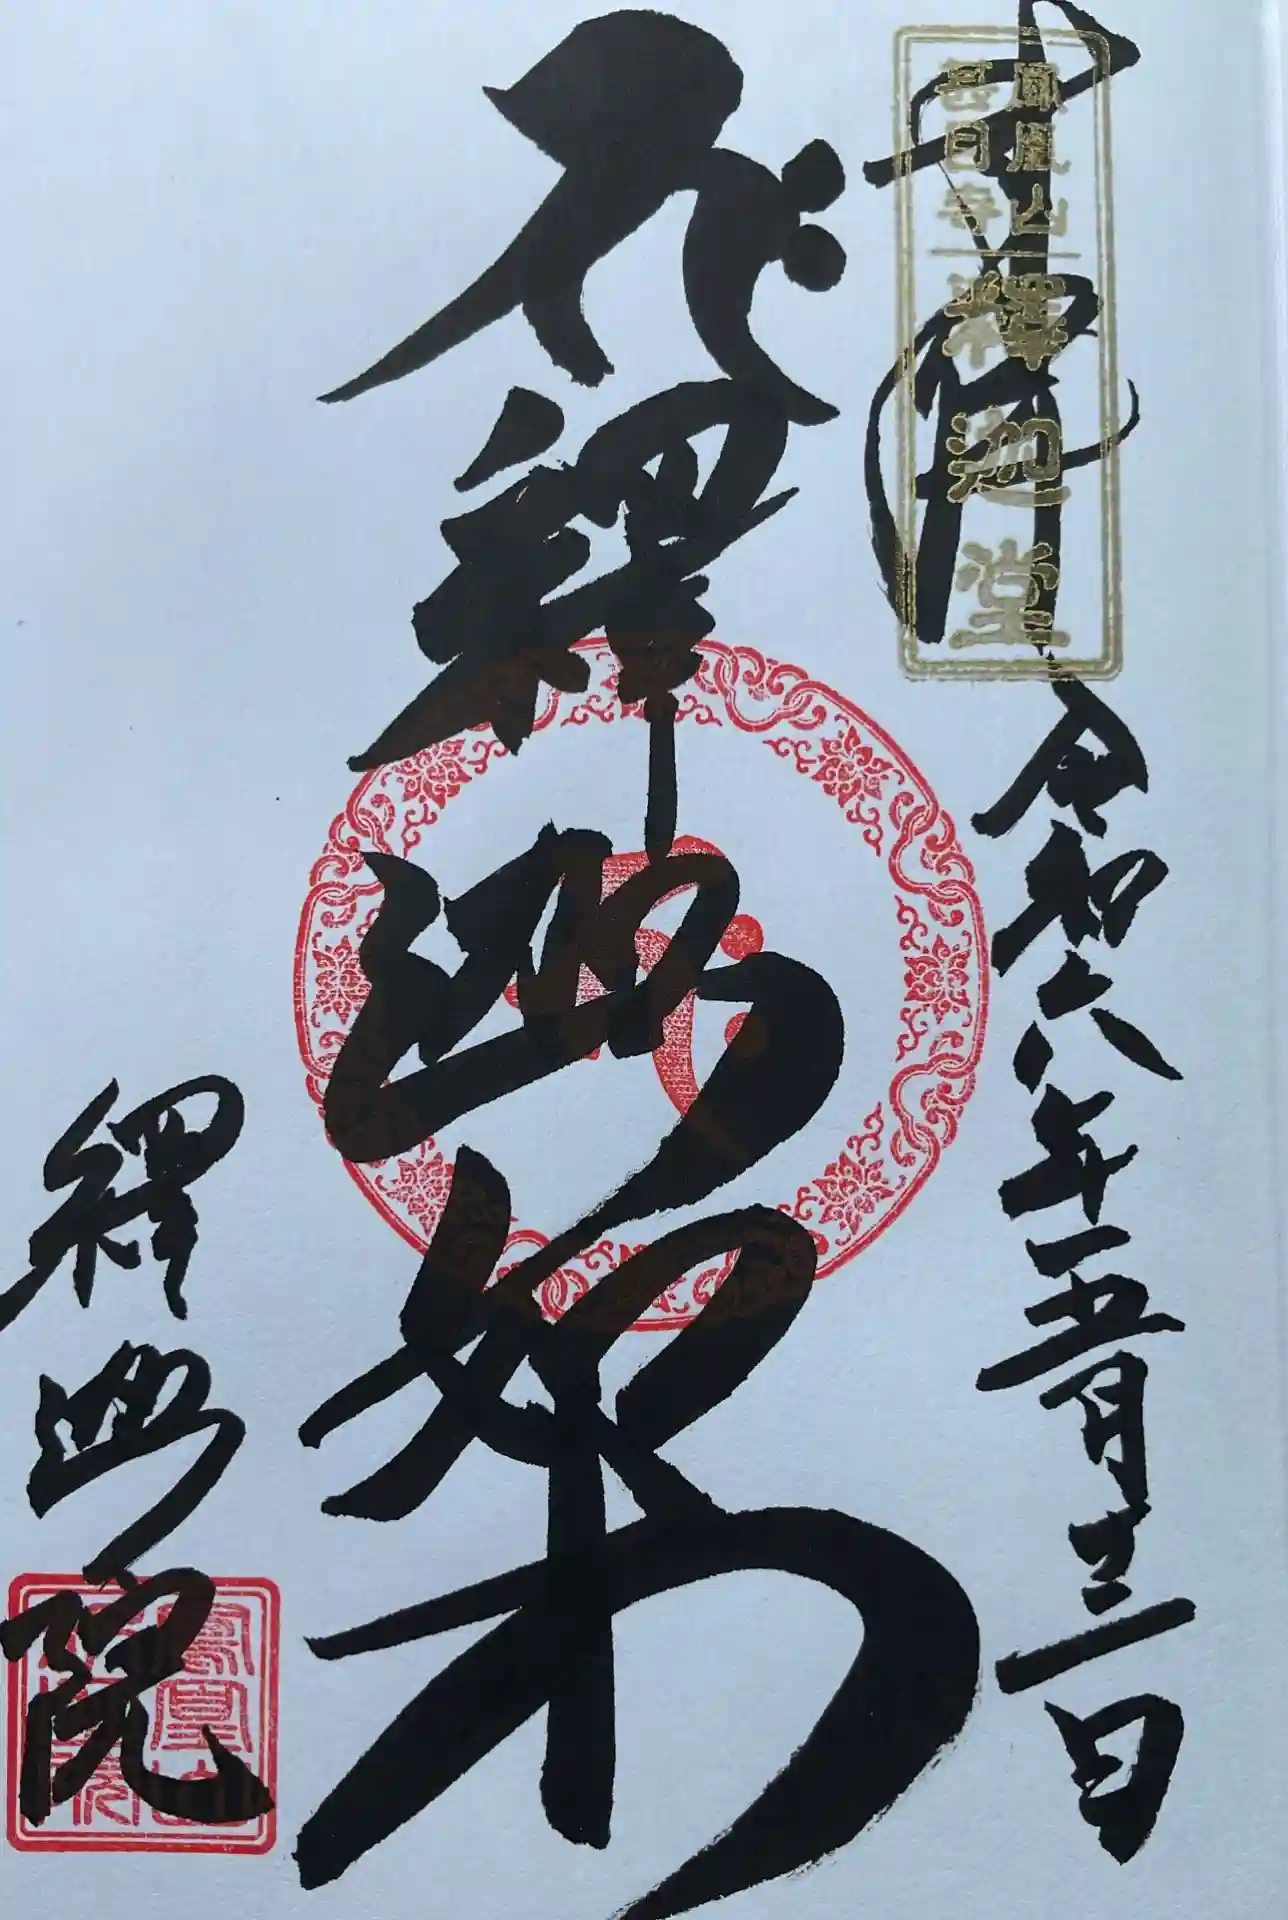 奉拝
鳳凰山
甚目寺
釋迦堂
令和六年五月十三日
釋迦如来
釋迦院